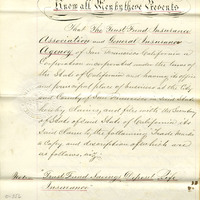 Know all Men by these Presents
That The Fend Fund Insurance
Association and General Insurance
Agency, of San Francisco California a
Corporation incorporated under the laws of
the State of California and having its office
and principal place of business at the City
and County of San Francisco in said State
hereby claims and files with the Secretary
of State of said State of California its
said claim to the following Trade Mark
a Copy and description of which are
as follows, viz:
Fund Savings Deposit Life
Insurance